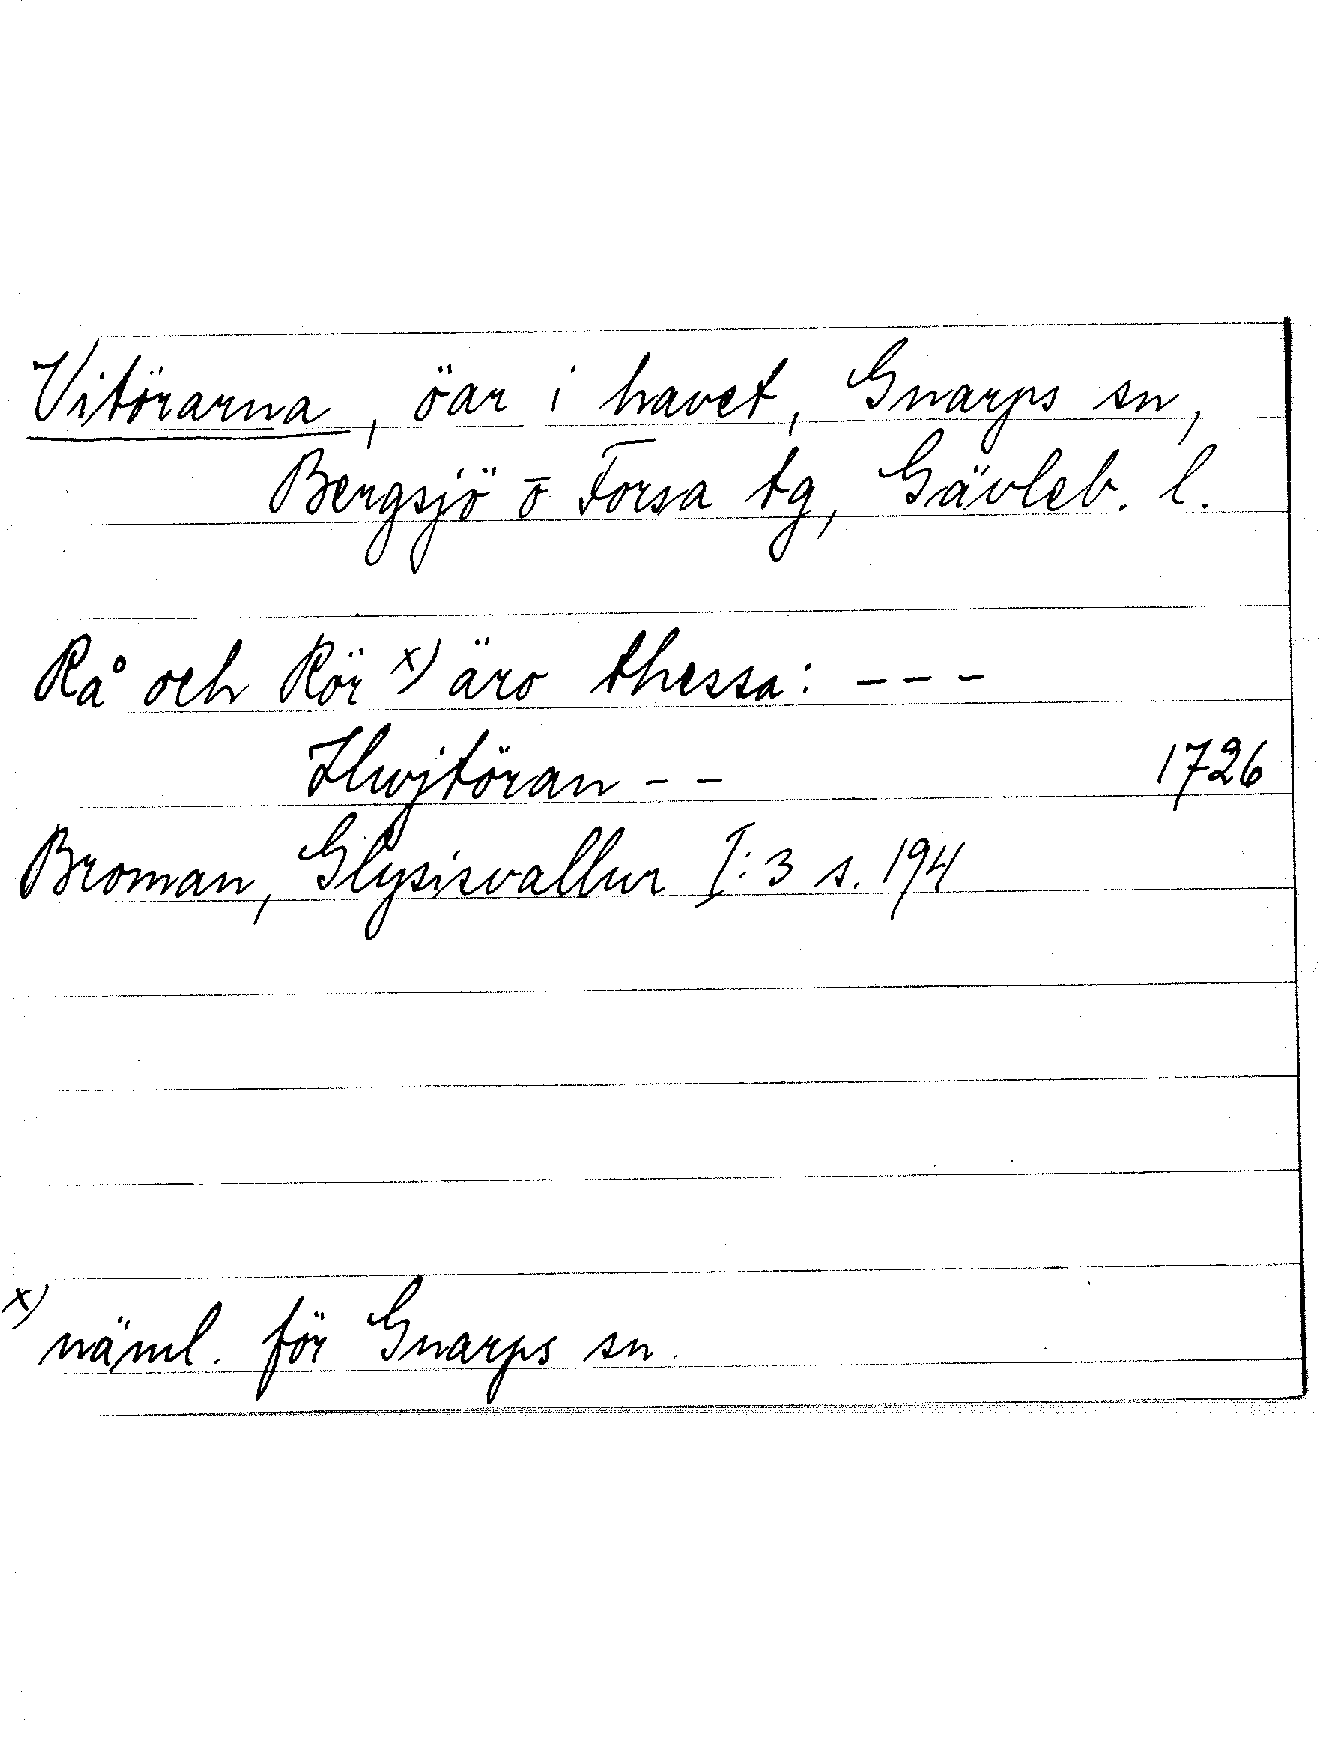 Vitörarna, öar i havet, Gnarps sn,
Bergsjö o Forsa tg, Gävleb. l.
Rå och Rör x) äro thessa: - - -
Hwjtöran - - 1726
Broman, Glysisvallur I:3 s. 194
x) näml. för Gnarps sn.